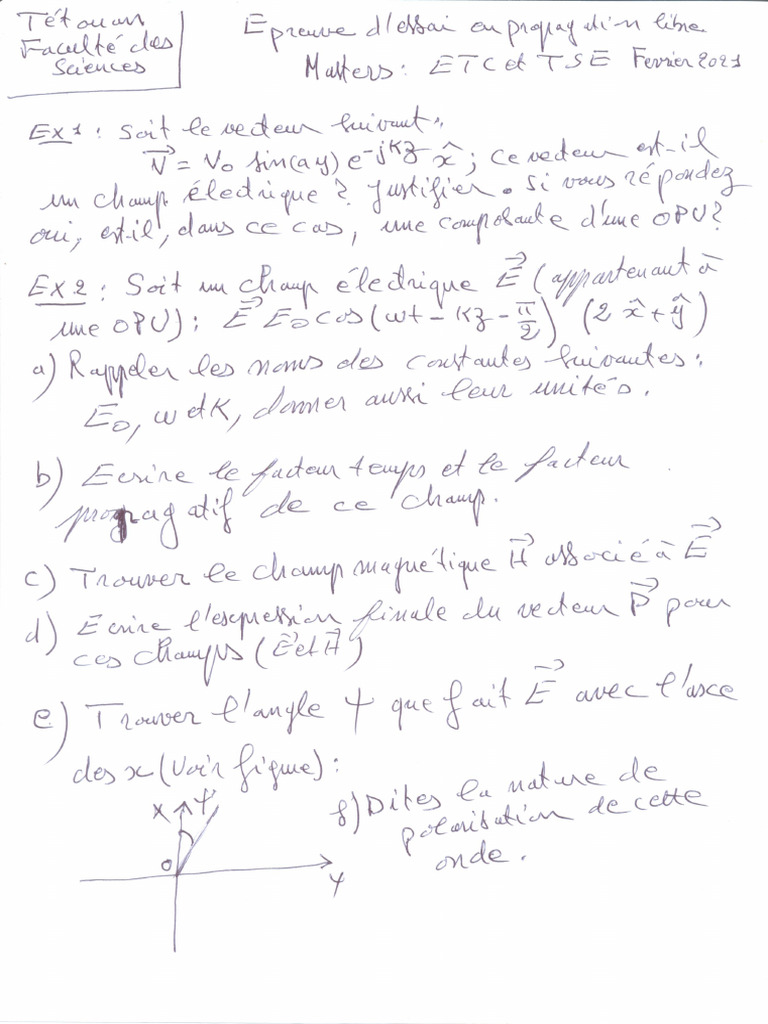 Tétouan
Faculté des
Sciences
Epreuve d'essai en propagation libre
Masters: ETC et TSE Fevrier 2021
Ex1: Soit le vecteur suivant:
V⃗ = V₀ sin(ay) e^-jKz x̂ ; ce vecteur est-il
un champ électrique? Justifier. Si vous répondez
oui, est-il, dans ce cas, une composante d'une OPU?
Ex.2: Soit un champ électrique E⃗ (appartenant à
une OPU): E⃗ E₀ cos(wt - Kz - π/2) (2 x̂ + ŷ)
a) Rappeler les noms des constantes suivantes:
E₀, w et K, donner aussi leur unités.
b) Ecrire le facteur temps et le facteur
propagatif de ce champ.
c) Trouver le champ magnétique H⃗ associé à E⃗
d) Ecrire l'expression finale du vecteur P⃗ pour
ces champs (E⃗ et H⃗)
e) Trouver l'angle Ψ que fait E⃗ avec l'axe
des x (Voir figure):
X Ψ
O
Y
f) Dites la nature de
polarisation de cette
onde.